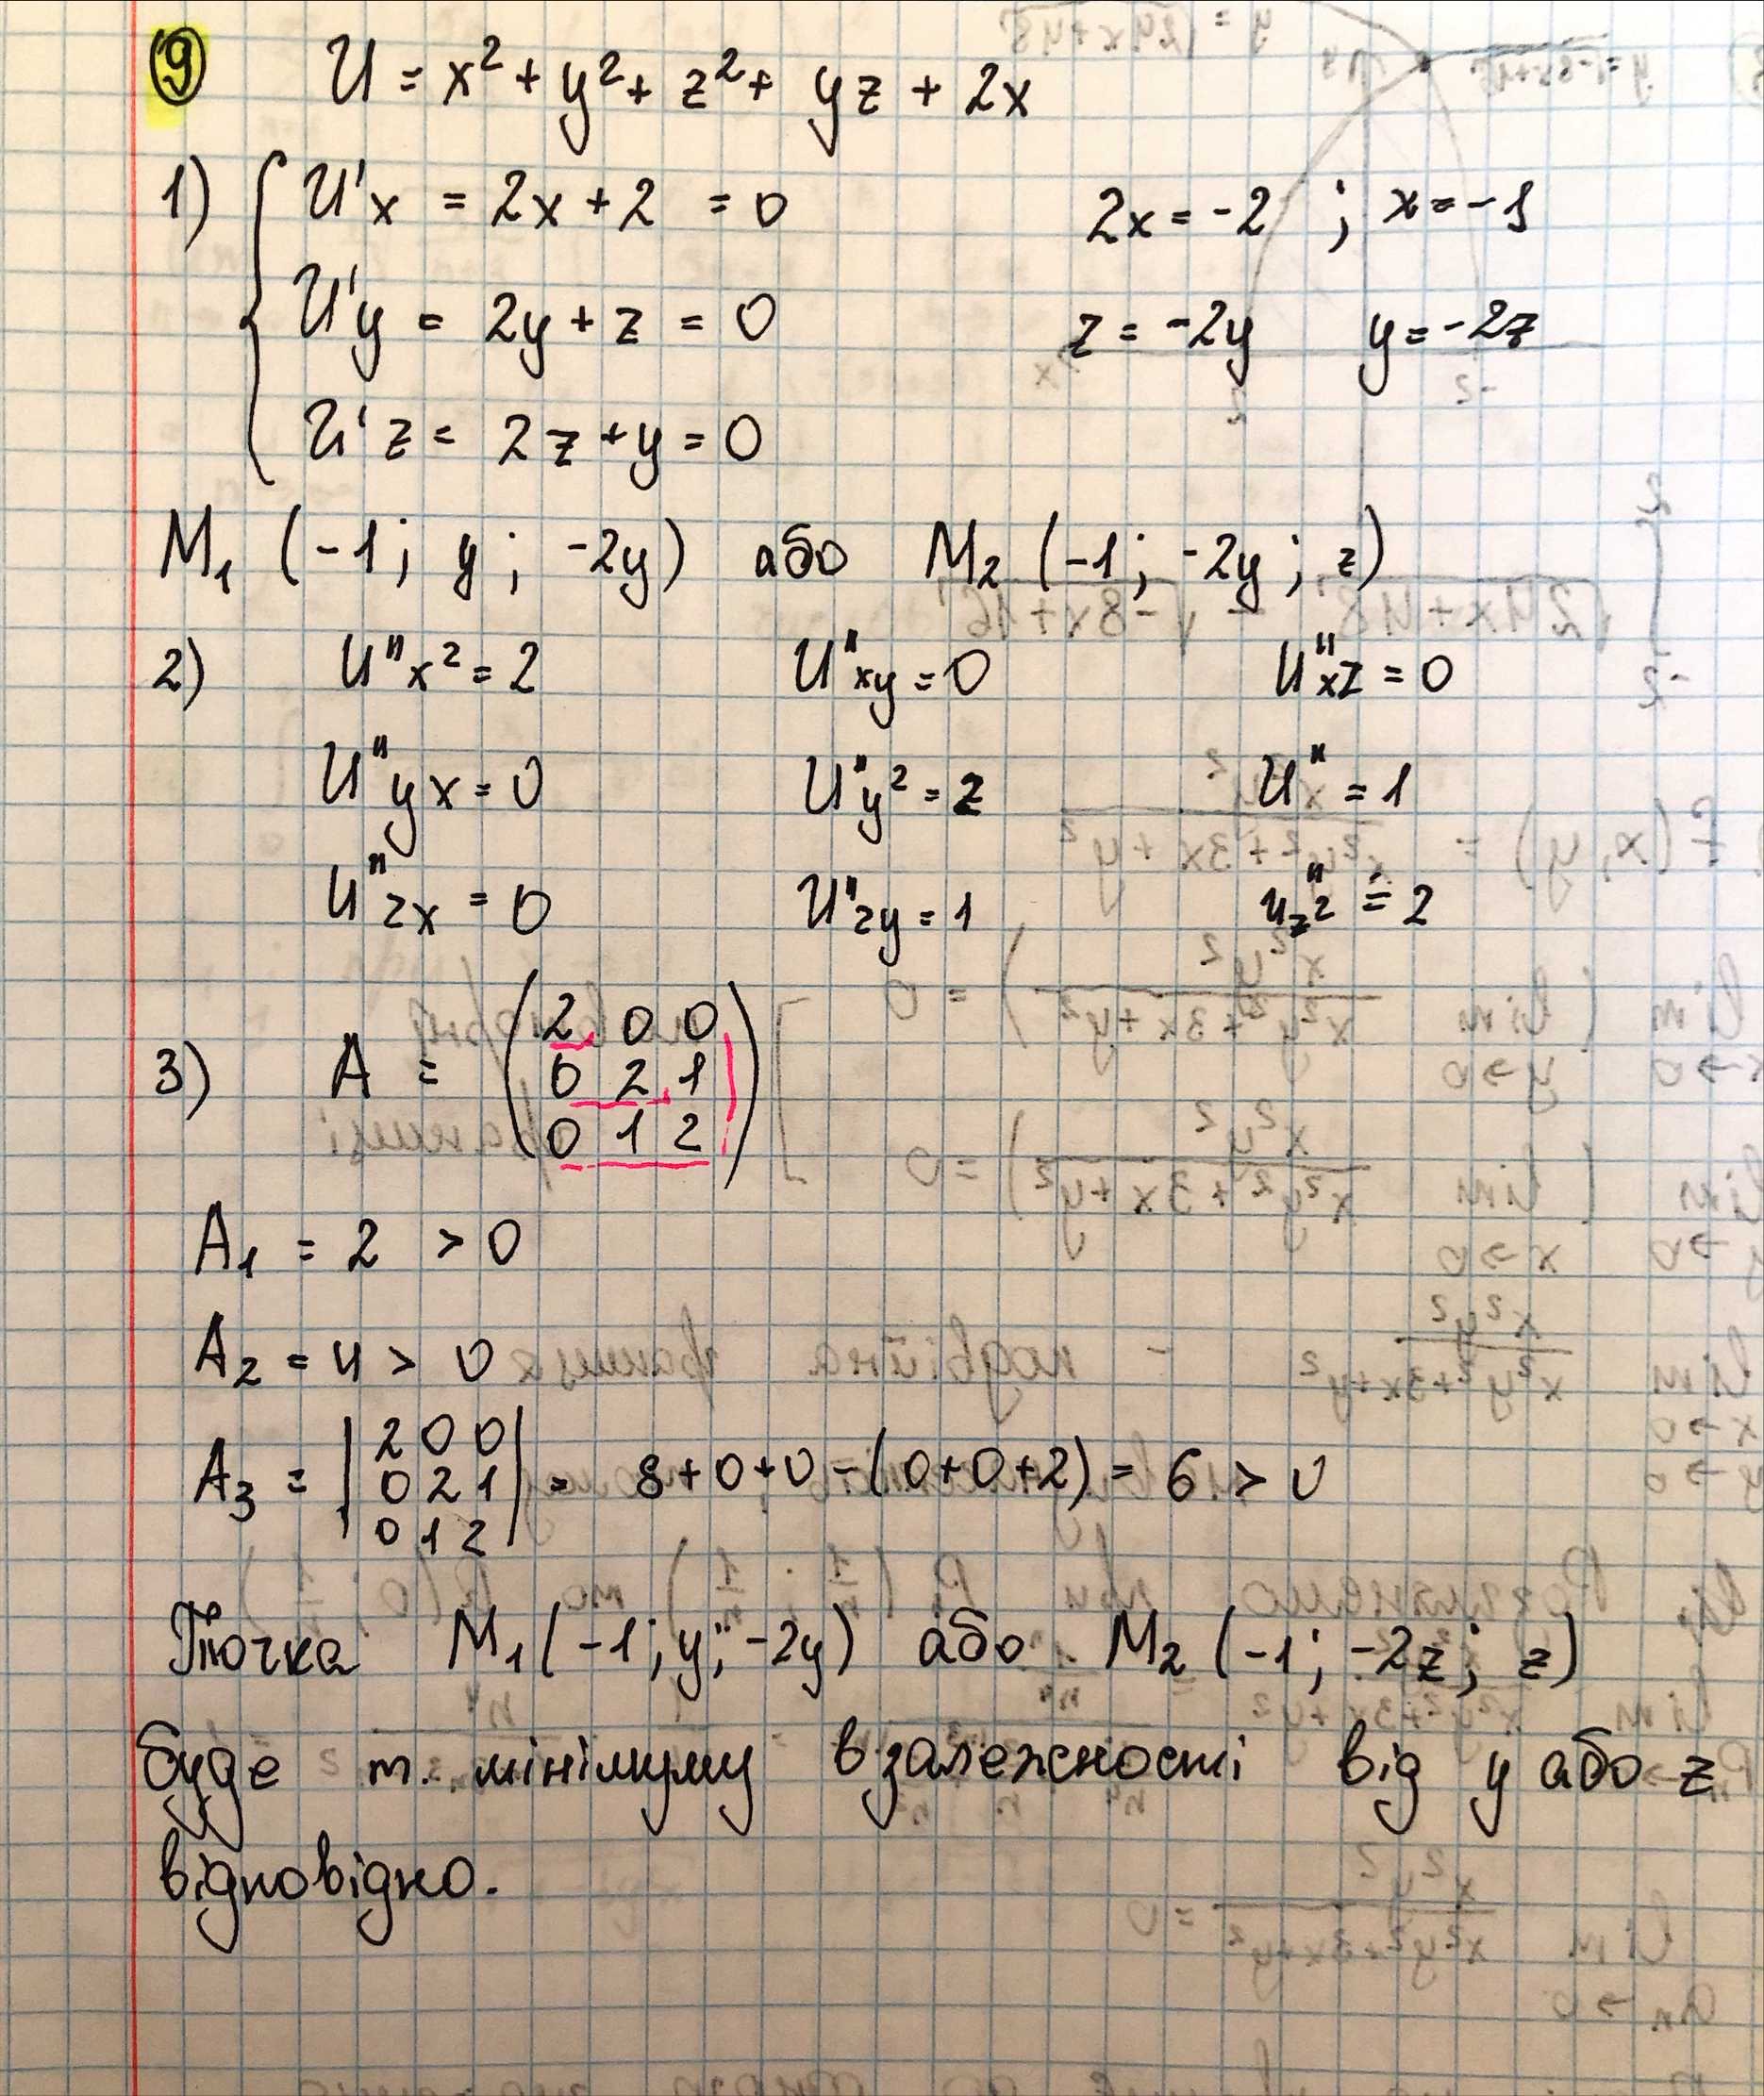 9 U = x² + y² + z² + yz + 2x
1) U'x = 2x + 2 = 0 2x = -2 ; x = -1
U'y = 2y + z = 0 z = -2y y = -2z
U'z = 2z + y = 0
M₁ (-1; y; -2y) або M₂ (-1; -2y; z)
2) U"x² = 2 U"xy = 0 U"xz = 0
U"yx = 0 U"y² = 2 U" = 1
U"zx = 0 U"zy = 1 u"z² = 2
3) A = (2 0 0
0 2 1
0 1 2)
A₁ = 2 > 0
A₂ = 4 > 0
A₃ = |2 0 0
0 2 1
0 1 2| = 8+0+0-(0+0+2) = 6 > 0
Точка M₁(-1; y; -2y) або M₂ (-1; -2z; z)
буде т. мінімуму в залежності від y або z
відповідно.